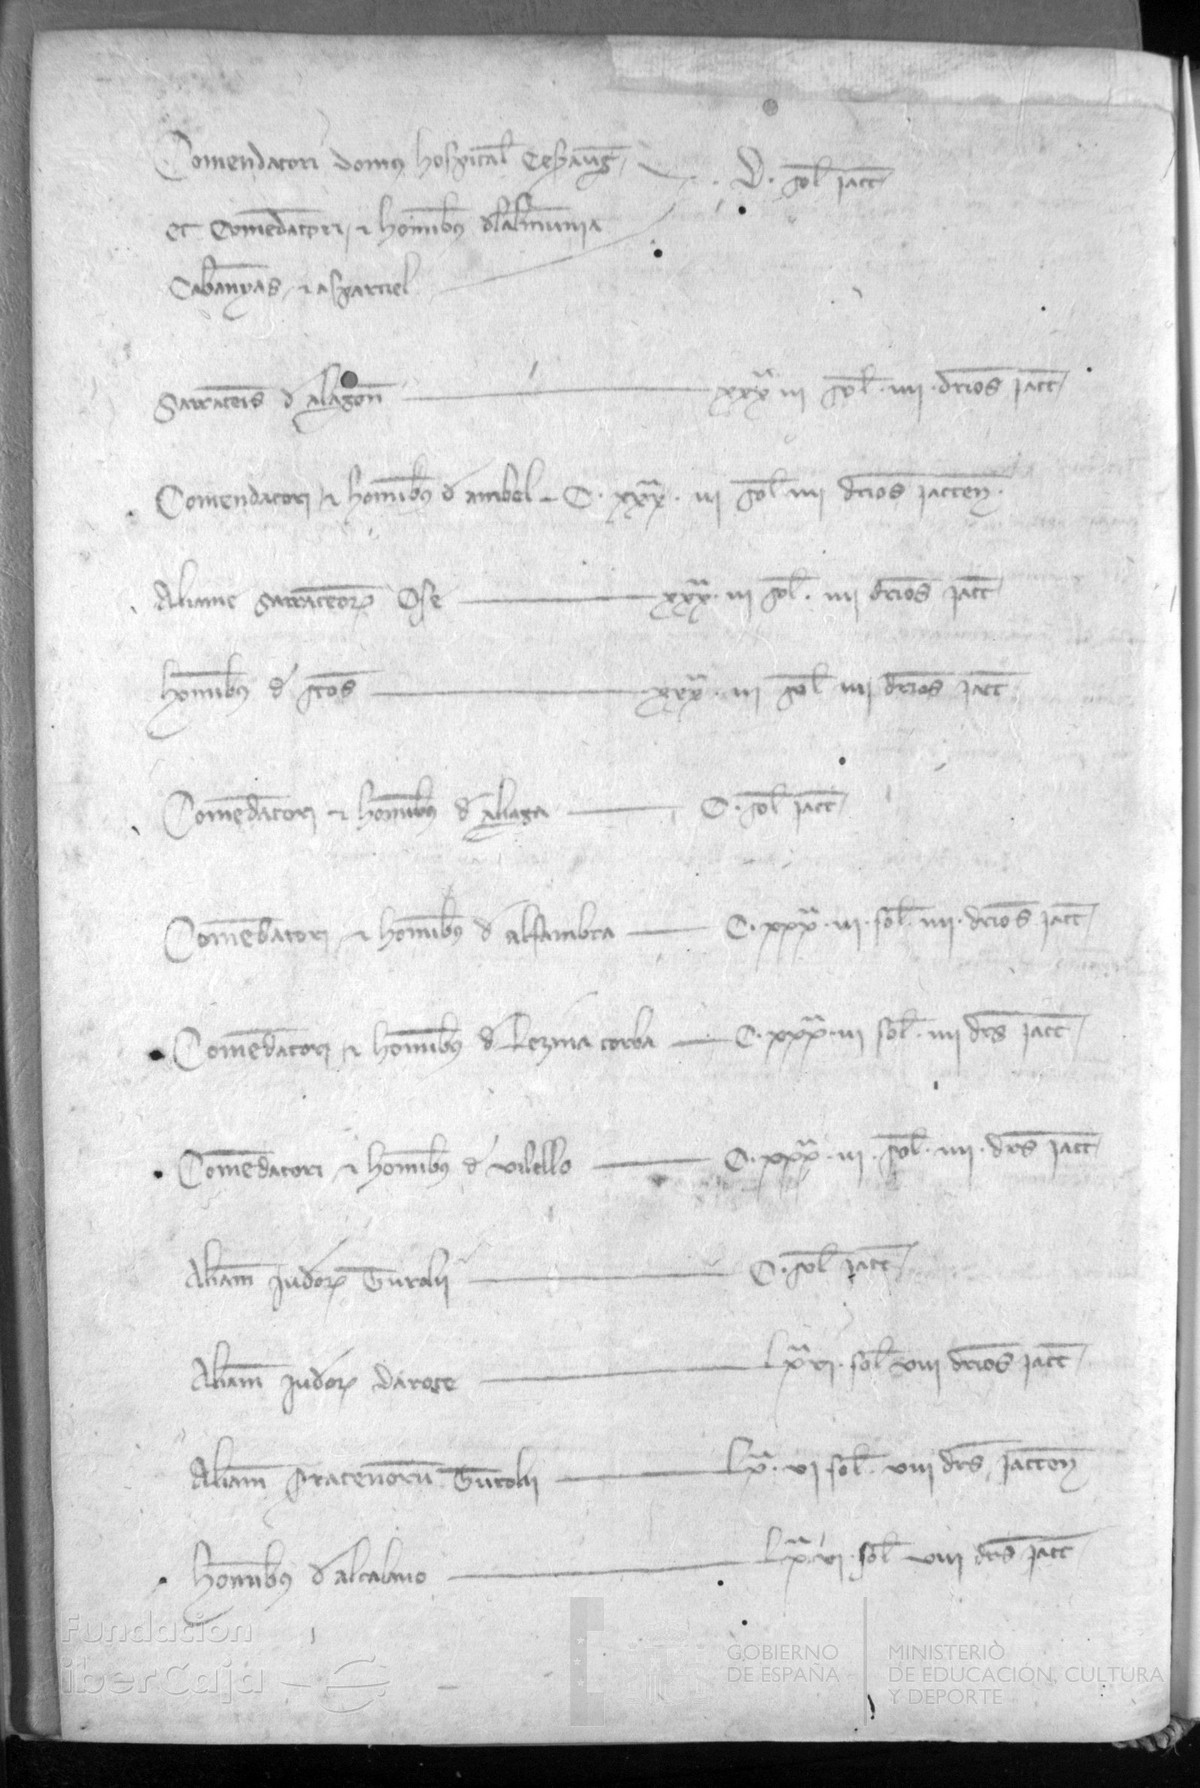 Comendatori domus hospital Cesaraug D. sol jacc
et Comendatori et hominibus d'alalmunia
Cabanyas et asparciel
Sarracenis d alagon xxxa iii sol. iiii. drios jacc
Comendatori et hominibus d ambel C. xxxa. iii sol iiii drios jaccen.
Aliame sarracenor Osce xxxa. iii sol. iiii drios jacc
hominibus d xxxa. iii sol iiii drios jacc
Comendatori et hominibus d aliaga C. sol jacc
Comendatori et hominibus d alfambra C. xxxa. iii. sol. iiii. drios jacc
Comendatori et hominibus d Lezina corba C. xxxa. iii sol. iiii drs jacc
Comendatori et hominibus d vilello C. xxxa. iii. sol. iiii. drs jacc
Aliam judeor Turolii C. sol jacc
Aliam judeor Daroce Lxa vi. sol viii drios jacc
Aliam sracenorum Turolii Lxa. vi sol. viii drs jaccen
hominibus d alcalano Lxa vi. sol viii drs jacc
Fundación
iberCaja
GOBIERNO
DE ESPAÑA
MINISTERIO
DE EDUCACIÓN, CULTURA
Y DEPORTE